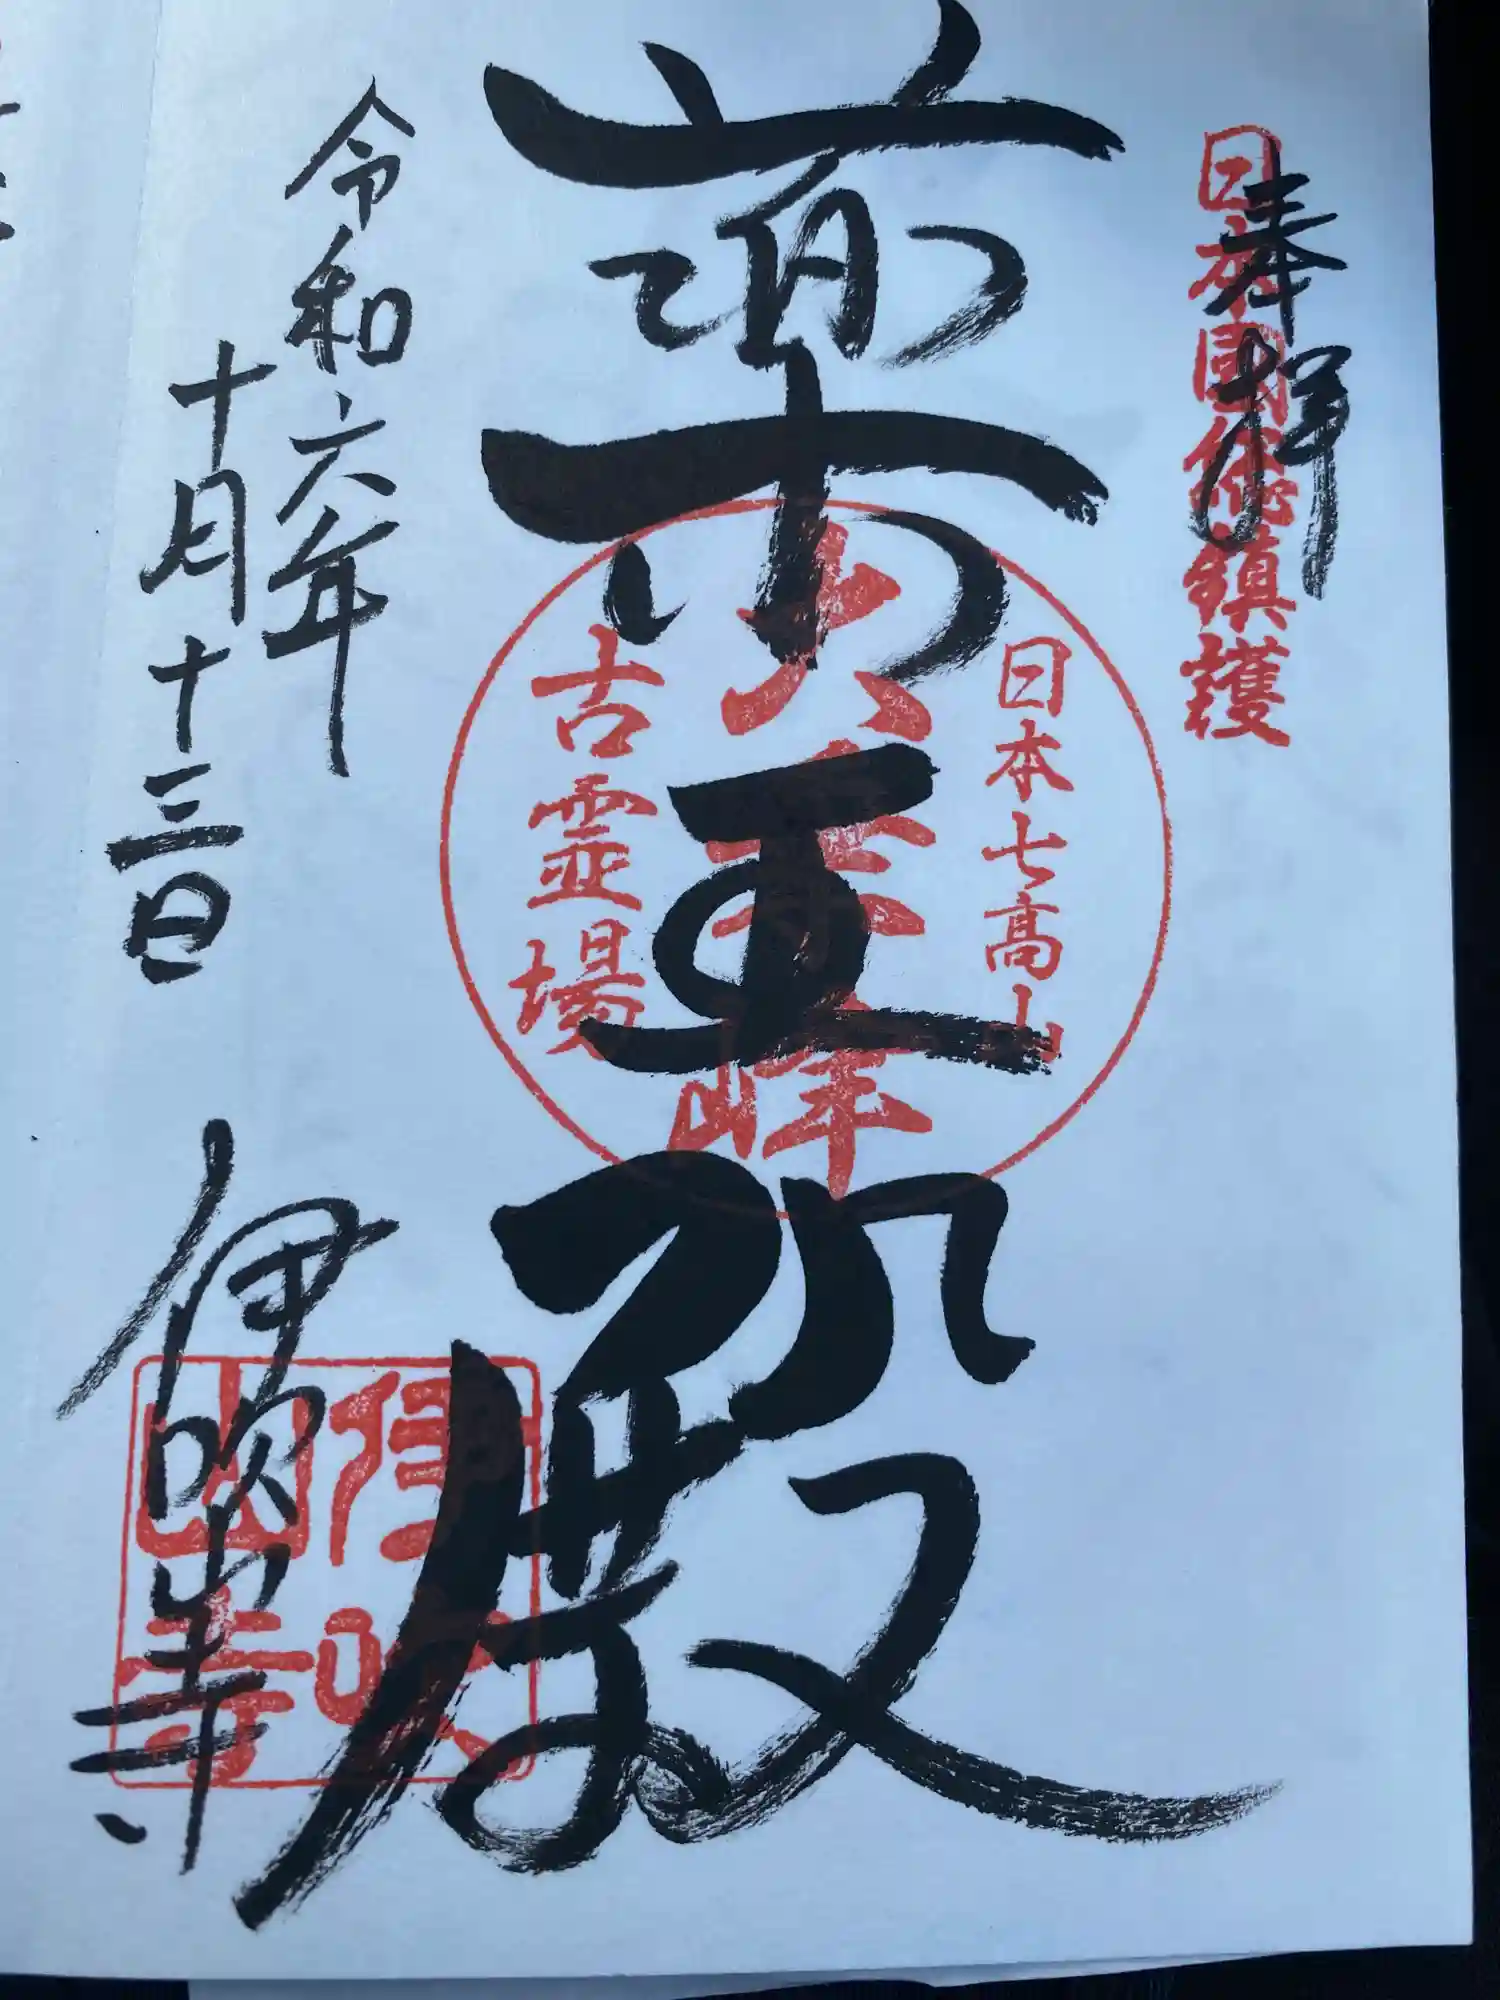 奉拝
日本國総鎮護
薬王殿
日本七高山
大乗峰
古霊場
令和六年
十月十三日
伊吹山寺
伊吹山寺